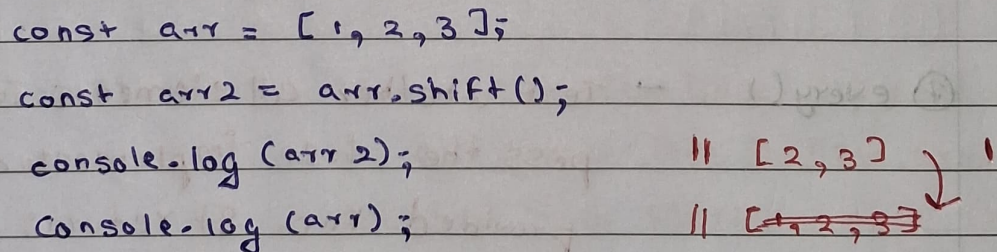 const arr = [1, 2, 3];
const arr2 = arr.shift();
console.log (arr 2); // [2, 3] 1
console.log (arr); // [1, 2, 3]